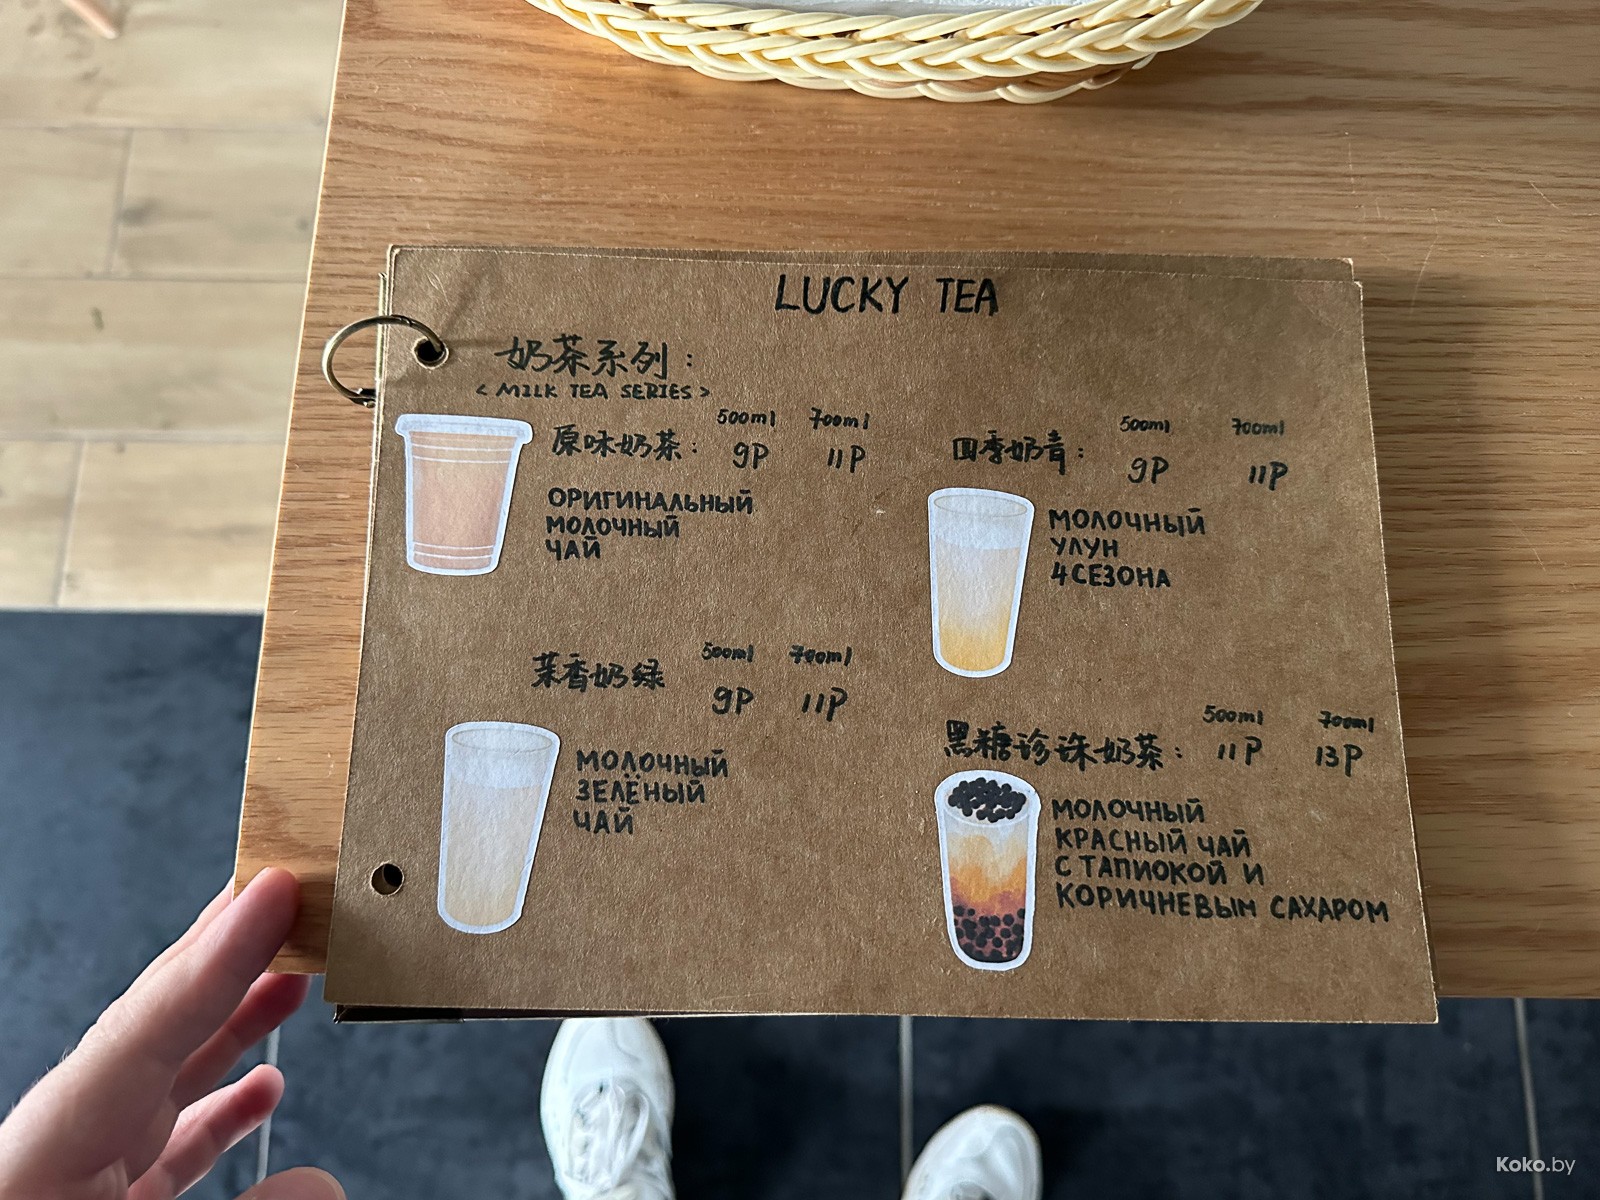 LUCKY TEA
奶茶系列：
< MILK TEA SERIES >
500ml 700ml
原味奶茶： 9P 11P
ОРИГИНАЛЬНЫЙ
МОЛОЧНЫЙ
ЧАЙ
500ml 700ml
四季奶青： 9P 11P
МОЛОЧНЫЙ
УЛУН
4 СЕЗОНА
500ml 700ml
茉香奶绿 9P 11P
МОЛОЧНЫЙ
ЗЕЛЁНЫЙ
ЧАЙ
500ml 700ml
黑糖珍珠奶茶： 11P 13P
МОЛОЧНЫЙ
КРАСНЫЙ ЧАЙ
С ТАПИОКОЙ И
КОРИЧНЕВЫМ САХАРОМ
Koko.by